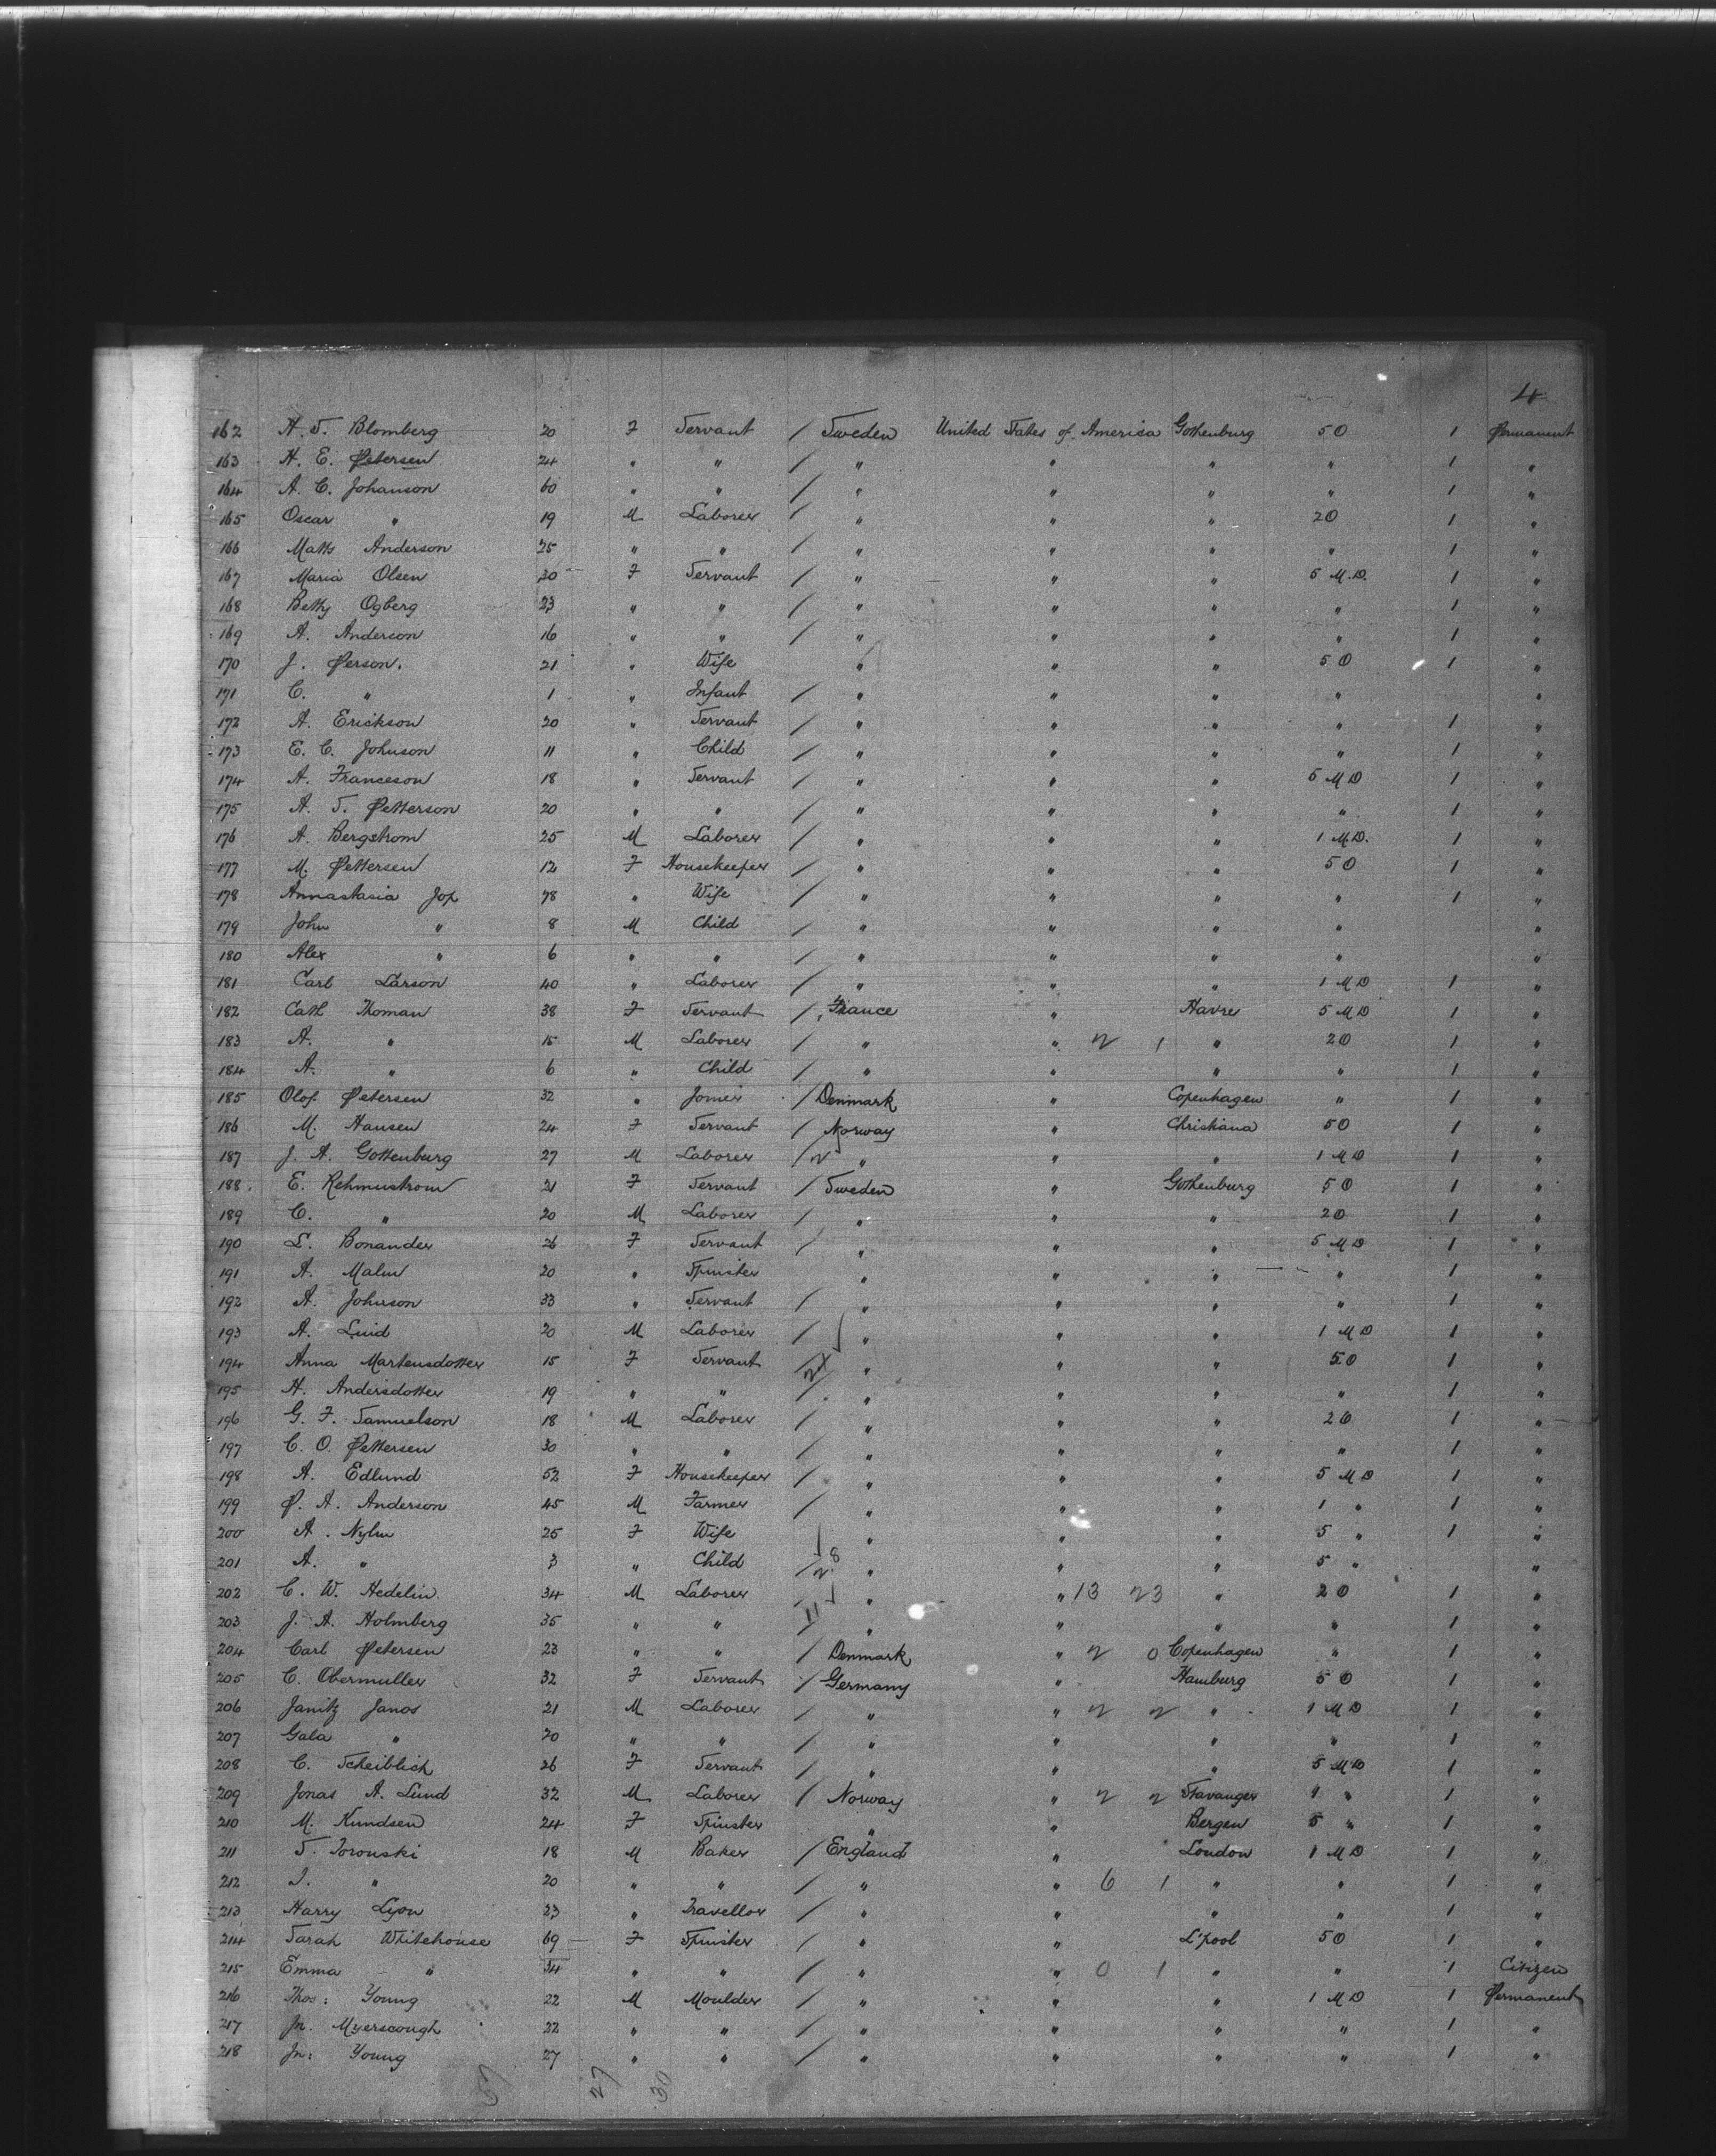 4
162 A. S. Blomberg 20 F Servant / Sweden United States of America Gothenburg 50 1 Permanent
163 H. E. Petersen 24 " " / " " " " 1 "
164 A. C. Johanson 60 " " / " " " " 1 "
165 Oscar " 19 M Laborer / " " " 20 1 "
166 Matts Anderson 25 " " / " " " " 1 "
167 Maria Olsen 20 F Servant / " " " 5 M.D. 1 "
168 Betty Ogberg 23 " " / " " " " 1 "
169 A. Anderson 16 " " / " " " " 1 "
170 J. Person. 21 " Wife " " " 50 1 "
171 C. " 1 " Infant / " " " " "
172 A. Erickson 20 " Servant / " " " " 1 "
173 E. C. Johnson 11 " Child / " " " " 1 "
174 A. Franceson 18 " Servant / " " " 5 M D 1 "
175 A. S. Petterson 20 " " / " " " " 1 "
176 A. Bergstrom 25 M Laborer / " " " 1 M D. 1 "
177 M. Pettersen 12 F Housekeeper / " " " 50 1 "
178 Annastasia Jop 78 " Wife / " " " " 1 "
179 John " 8 M Child / " " " " "
180 Alex " 6 " " / " " " " "
181 Carl Larson 40 " Laborer / " " " 1 M D 1 "
182 Cath Thoman 38 F Servant / France " Havre 5 M D 1 "
183 A. " 15 M Laborer / " " 2 1 " 20 1 "
184 A. " 6 " Child / " " " " 1 "
185 Olof Petersen 32 " Joiner / Denmark " Copenhagen " 1 "
186 M. Hansen 24 F Servant / Norway " Christiana 50 1 "
187 J. A. Gottenburg 27 M Laborer / 2 " " " 1 M D 1 "
188. E. Rehmustrom 21 F Servant / Sweden " Gothenburg 50 1 "
189 C. " 20 M Laborer / " " " 20 1 "
190 L. Bonander 26 F Servant / " " " 5 M D 1 "
191 A. Malm 20 " Spinster " " " " 1 "
192 A. Johnson 33 " Servant / " " " " 1 "
193 A. Luid 20 M Laborer / " " " 1 M D 1 "
194 Anna Martensdotter 15 F Servant / " " " 50 1 "
195 H. Andersdotter 19 " " / " " " " 1 "
196 G. F. Samuelson 18 M Laborer / " " " 20 1 "
197 C. O. Pettersen 30 " " / " " " " 1 "
198 A. Edlund 52 F Housekeeper / " " " 5 M D 1 "
199 P. A. Anderson 45 M Farmer / " " " 1 " 1 "
200 A. Nylm 25 F Wife " " " 5 " 1 "
201 A. " 3 " Child / 28 " " " 5 " "
202 C. W. Hedelin 34 M Laborer / " " 13 23 " 20 1 "
203 J. A. Holmberg 35 " " 11 " " " " 1 "
204 Carl Petersen 23 " " / Denmark " 2 0 Copenhagen " 1 "
205 C. Obermuller 32 F Servant / Germany " Hamburg 50 1 "
206 Janitz Janos 21 M Laborer / " " 2 2 " 1 M D 1 "
207 Gala " 20 " " / " " " " 1 "
208 C. Scheiblich 26 F Servant / " " " 5 M D 1 "
209 Jonas A. Lund 32 M Laborer / Norway " 2 2 Stavanger 1 " 1 "
210 M. Kundsen 24 F Spinster " " Bergen 5 " 1 "
211 S. Toronski 18 M Baker / England " London 1 M D 1 "
212 I. " 20 " " / " " 6 1 " " 1 "
213 Harry Lyon 23 " Travellor / " " " " 1 "
214 Sarah Whitehouse 69 F Spinster / " " L'pool 50 1 "
215 Emma " 34 " " / " " 0 1 " " 1 Citizen
216 Thos: Young 22 M Moulder / " " " 1 M D 1 Permanent
217 Jn. Myerscough 22 " " / " " " " 1 "
218 Jn: Young 27 " " / " " " " 1 "
57 27 30